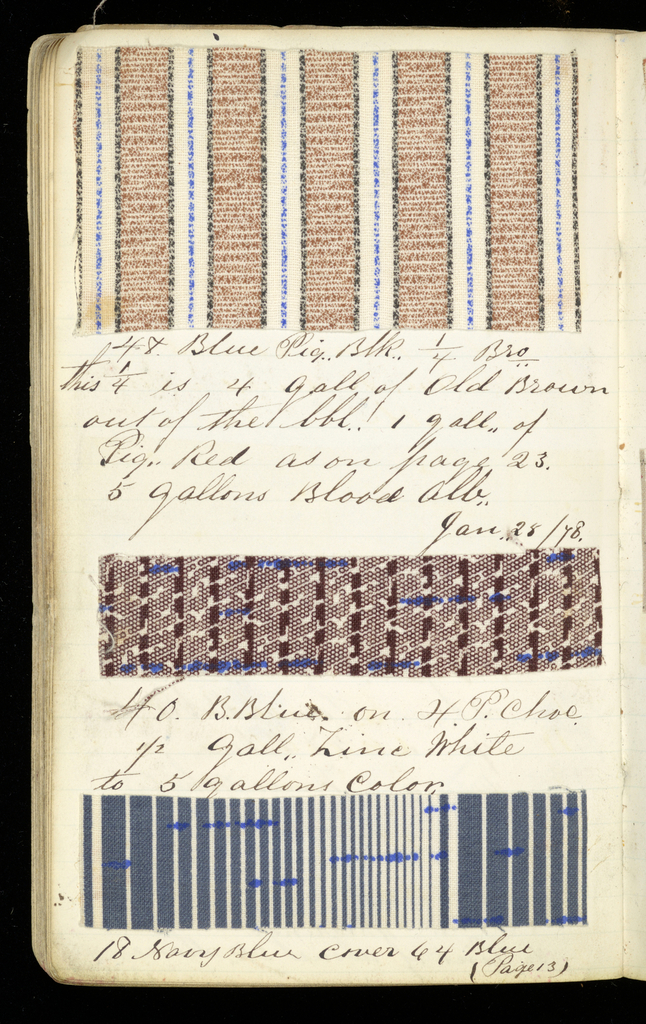 48. Blue Pig. Blk. 1/4 Bro
this 1/4 is 4 gall of Old Brown
out of the bbl. 1 gall. of
Pig. Red as on page 23.
5 gallons Blood Alb.
Jan. 28/78.
40. B.Blue. on 4 P. Choc.
1/2 gall. Zinc White
to 5 gallons Color.
18 Navy Blue cover 64 Blue
(Page 13)